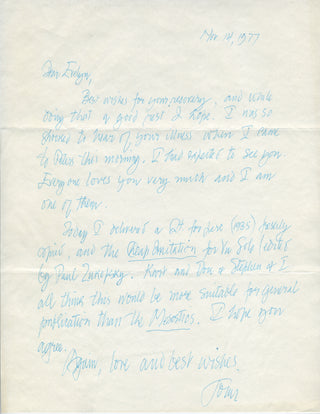 Nov 14, 1977
Dear Evelyn,
Best wishes for your recovery, and while
doing that a good rest I hope. I was so
shocked to hear of your illness when I came
to Peters this morning. I had expected to see you.
Everyone loves you very much and I am
one of them.
Today I delivered a for (1935)
and the Cheap Imitation for Vn Solo (edited
by Paul Zukofsky. and Don & Stephen & I
all think this would be more suitable for general
publication than the Mesostics. I hope you
agree.
Again, love and best wishes,
John